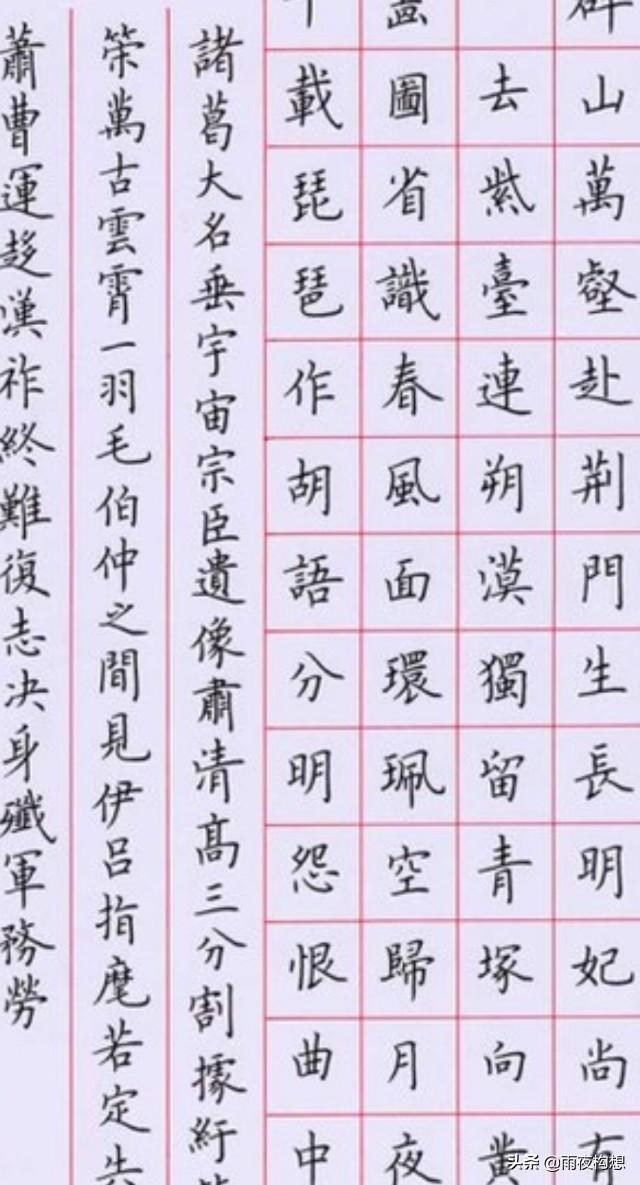 群山萬壑赴荆門生長明妃尚有
去紫臺連朔漠獨留青塚向黄
畫圖省識春風面環珮空歸月夜
千載琵琶作胡語分明怨恨曲中
諸葛大名垂宇宙宗臣遺像肅清高三分割據紆
策萬古雲霄一羽毛伯仲之間見伊吕指麾若定失
蕭曹運趍漢祚終難復志决身殲軍務勞
头条 @雨夜构想